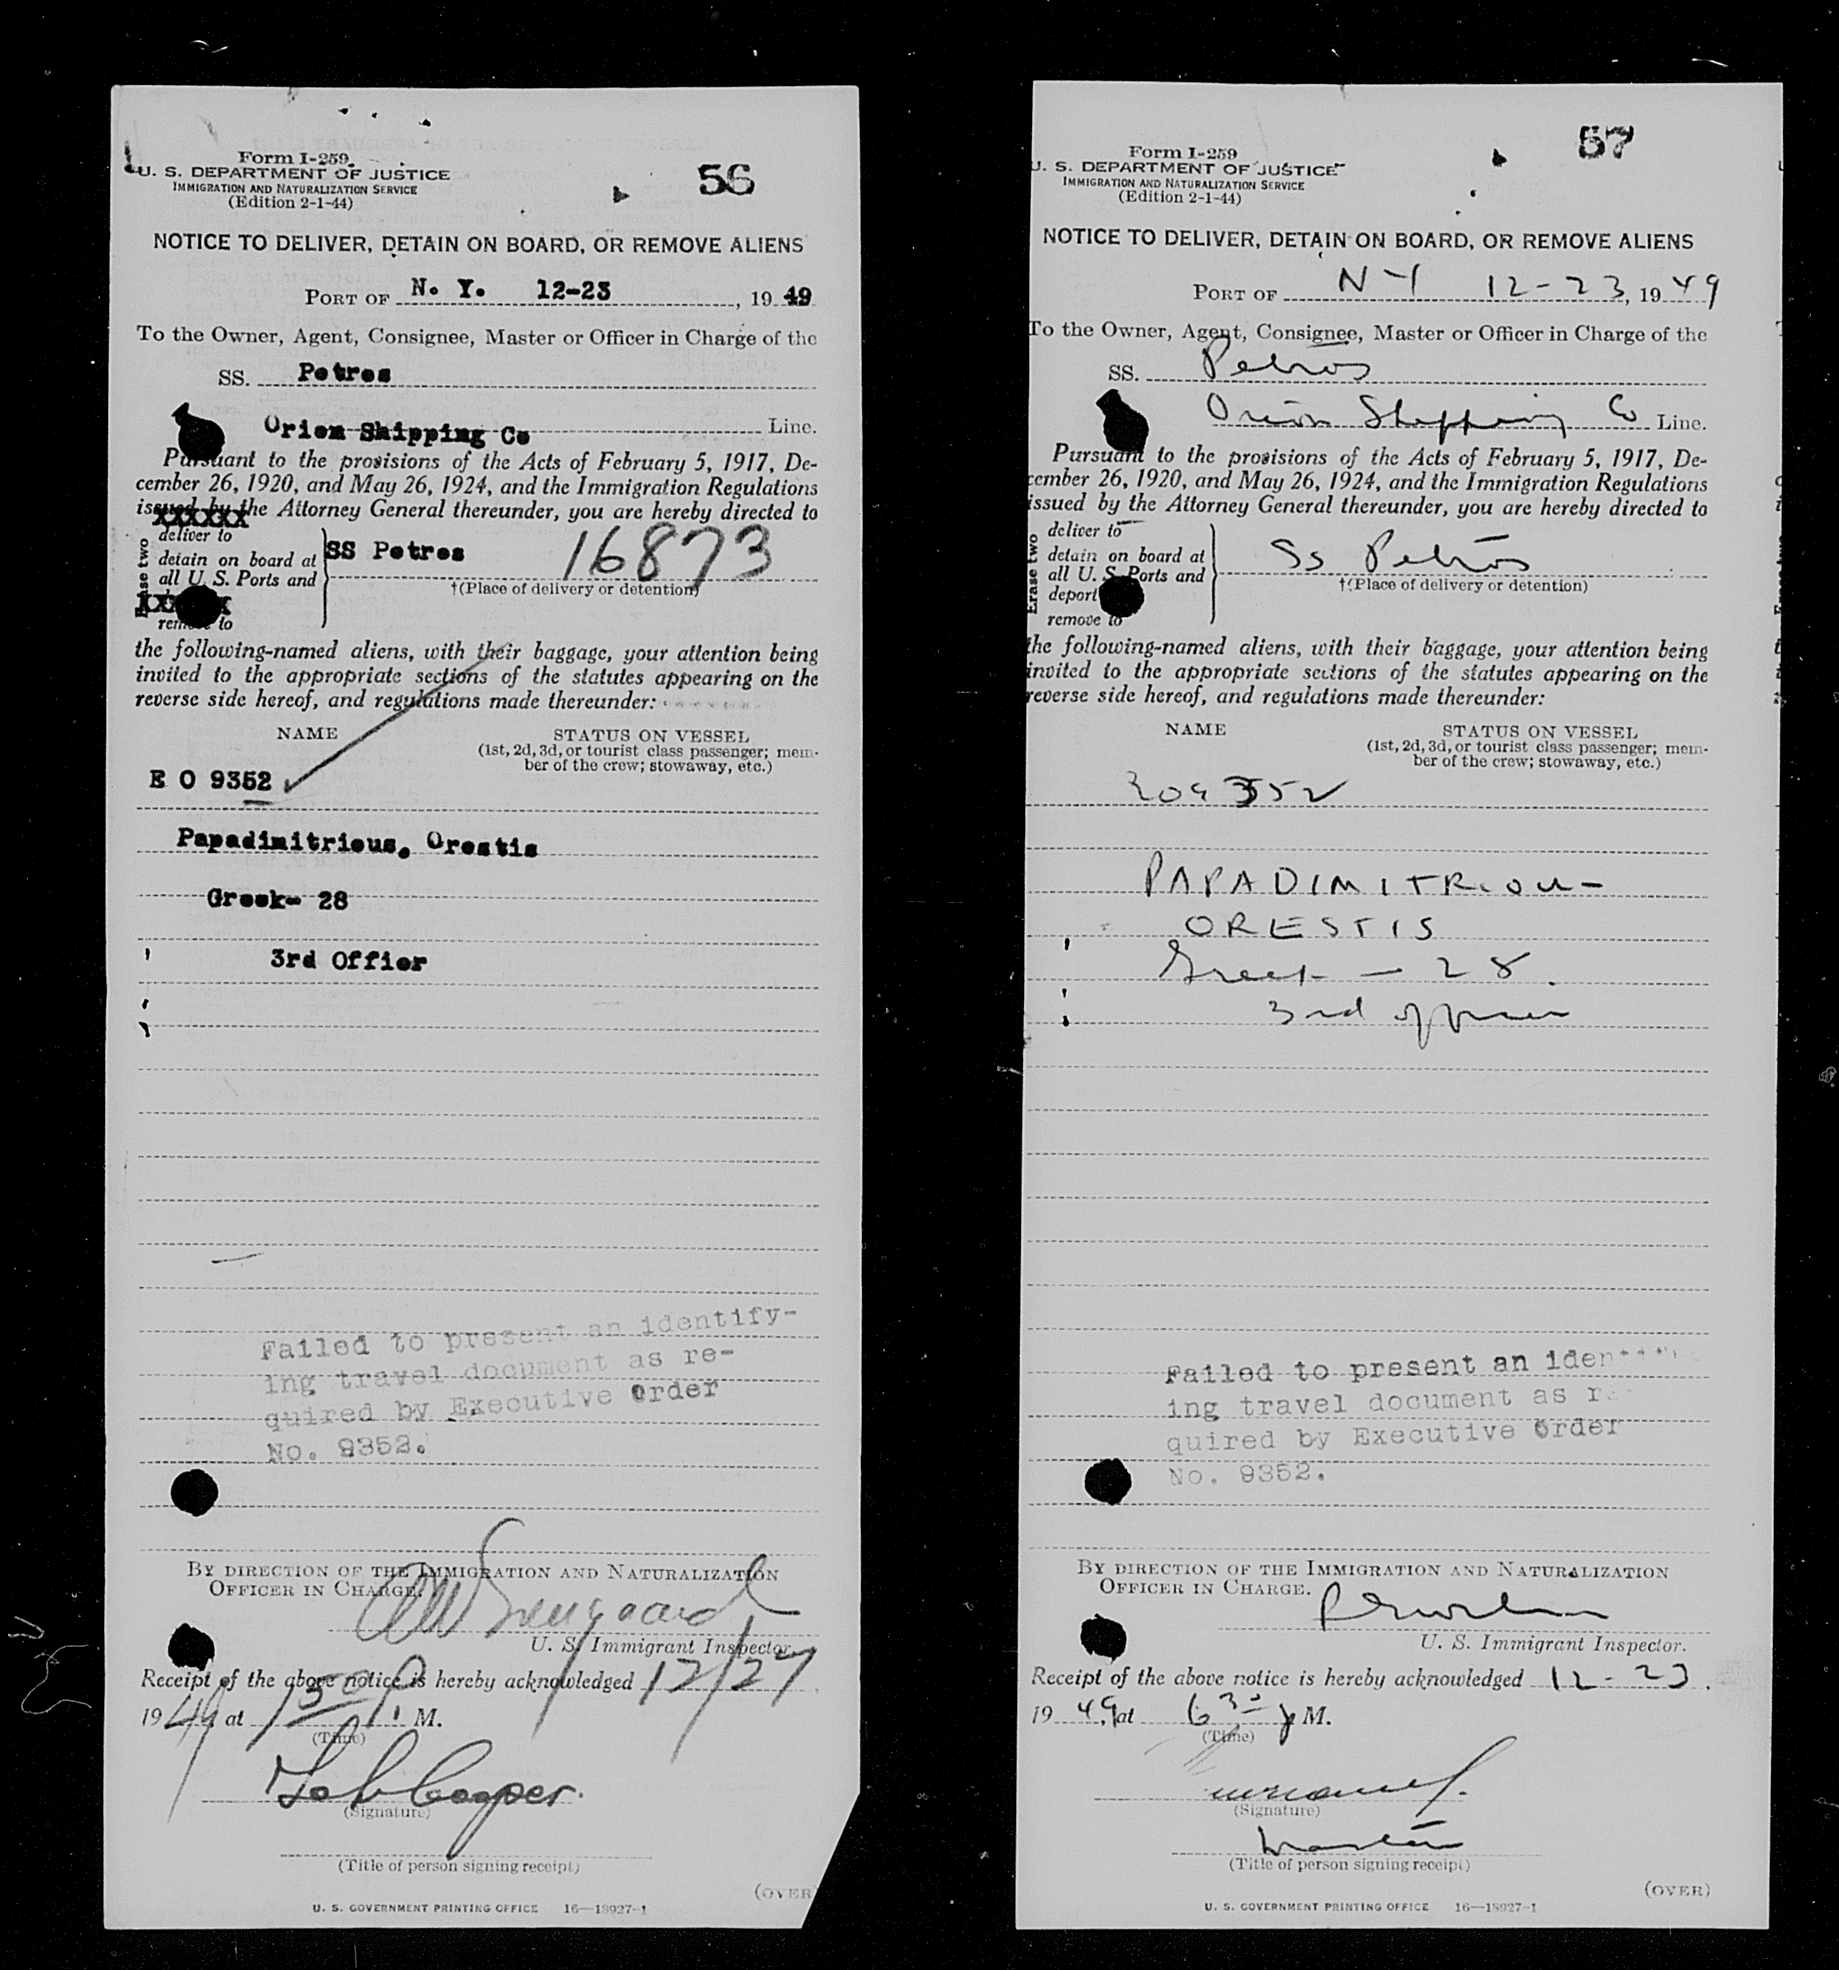 Form I-259
U. S. DEPARTMENT OF JUSTICE
IMMIGRATION AND NATURALIZATION SERVICE
(Edition 2-1-44)
56
NOTICE TO DELIVER, DETAIN ON BOARD, OR REMOVE ALIENS
PORT OF N. Y. 12-23, 19 49
To the Owner, Agent, Consignee, Master or Officer in Charge of the
SS. Petros
Orion Shipping Co Line.
Pursuant to the provisions of the Acts of February 5, 1917, De-
cember 26, 1920, and May 26, 1924, and the Immigration Regulations
issued by the Attorney General thereunder, you are hereby directed to
XXXXXX
Erase two
deliver to
detain on board at
all U. S. Ports and
remove to
SS Petros 16873
†(Place of delivery or detention)
the following-named aliens, with their baggage, your attention being
invited to the appropriate sections of the statutes appearing on the
reverse side hereof, and regulations made thereunder:
NAME
STATUS ON VESSEL
(1st, 2d, 3d, or tourist class passenger; mem-
ber of the crew; stowaway, etc.)
E O 9352
Papadimitrious, Orestis
Greek- 28
3rd Offier
Failed to present an identify-
ing travel document as re-
quired by Executive Order
No. 9352.
BY DIRECTION OF THE IMMIGRATION AND NATURALIZATION
OFFICER IN CHARGE.
U. S. Immigrant Inspector.
Receipt of the above notice is hereby acknowledged 12/27
1949 at 130 P. M.
(Time)
Cooper
(Signature)
(Title of person signing receipt)
(OVER)
U. S. GOVERNMENT PRINTING OFFICE 16—18927-1
Form I-259
U. S. DEPARTMENT OF JUSTICE
IMMIGRATION AND NATURALIZATION SERVICE
(Edition 2-1-44)
57
NOTICE TO DELIVER, DETAIN ON BOARD, OR REMOVE ALIENS
PORT OF N Y 12-23, 19 49
To the Owner, Agent, Consignee, Master or Officer in Charge of the
SS. Petros
Orion Shipping Co Line.
Pursuant to the provisions of the Acts of February 5, 1917, De-
cember 26, 1920, and May 26, 1924, and the Immigration Regulations
issued by the Attorney General thereunder, you are hereby directed to
Erase two
deliver to
detain on board at
all U. S. Ports and
deport
remove to
SS Petros
†(Place of delivery or detention)
the following-named aliens, with their baggage, your attention being
invited to the appropriate sections of the statutes appearing on the
reverse side hereof, and regulations made thereunder:
NAME
STATUS ON VESSEL
(1st, 2d, 3d, or tourist class passenger; mem-
ber of the crew; stowaway, etc.)
EO 9352
PAPADIMITRIOU-
ORESTIS
Greek - 28
3rd officer
Failed to present an iden
ing travel document as r
quired by Executive Order
No. 9352.
BY DIRECTION OF THE IMMIGRATION AND NATURALIZATION
OFFICER IN CHARGE.
U. S. Immigrant Inspector.
Receipt of the above notice is hereby acknowledged 12-23.
1949 at 630 P M.
(Time)
(Signature)
Master
(Title of person signing receipt)
(OVER)
U. S. GOVERNMENT PRINTING OFFICE 16—18927-1